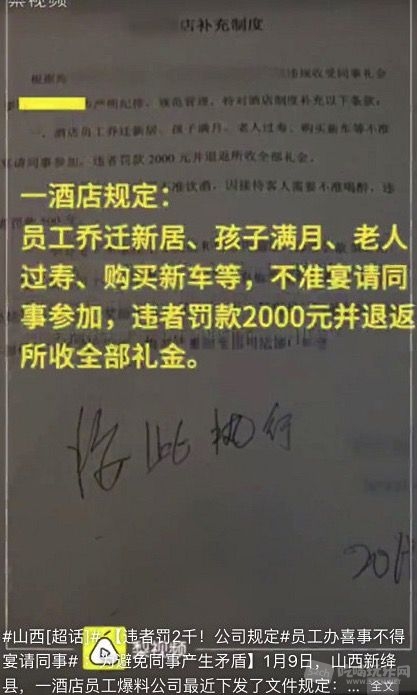 梨视频
店补充制度
严明纪律、规范管理,特对酒店制度补充以下条款:
一、酒店员工乔迁新居、孩子满月、老人过寿、购买新车等不准
宴请同事参加,违者罚款2000元并退返所收全部礼金。
一酒店规定:
员工乔迁新居、孩子满月、老人
过寿、购买新车等,不准宴请同
事参加,违者罚款2000元并退返
所收全部礼金。
按此执行
梨视频
#山西[超话]#【违者罚2千!公司规定#员工办喜事不得
宴请同事# :为避免同事产生矛盾】1月9日,山西新绛
县,一酒店员工爆料公司最近下发了文件规定:... 全文